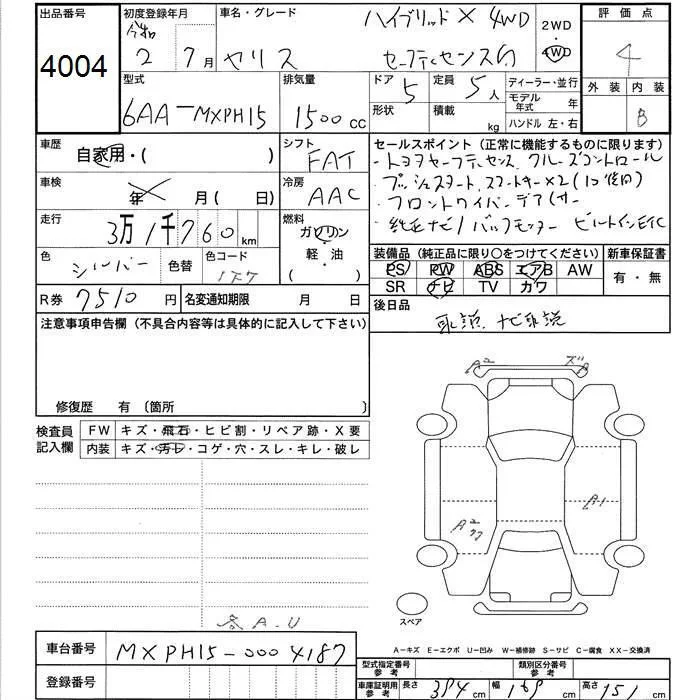 出品番号
4004
初度登録年月
令和
2 7月
車名・グレード
ハイブリッド X 4WD
ヤリス セーフティセンス付
2WD
4WD
評価点
4
外装 内装
B
型式
6AA-MXPH15
排気量
1500 cc
ドア 5
定員 5人
形状
積載 kg
ディーラー・並行
モデル年式 年
ハンドル 左・右
車歴
自家用・( )
シフト
FAT
車検
年 月 ( 日)
冷房
AAC
走行
3万1千760km
燃料
ガソリン
・
軽・油
( )
色
シルバー
色替
色コード
R券 7510円
名変通知期限 月 日
セールスポイント (正常に機能するものに限ります)
・トヨタセーフティセンス クルーズコントロール
・プッシュスタート スマートキー×2(1つ後日)
・フロントワイパーデアイサー
・純正ナビ/バックモニター ビルトインETC
装備品 (純正品に限り○をつけてください)
PS PW ABS エアB AW
SR ナビ TV カワ
新車保証書
有・無
後日品
取説 ナビ取説
注意事項申告欄 (不具合内容等は具体的に記入して下さい)
修復歴 有 〔箇所 〕
検査員記入欄
FW キズ・飛石・ヒビ割・リペア跡・X要
内装 キズ・汚レ・コゲ・穴・スレ・キレ・破レ
各A.U
A2
ズA
A2
A1
スペア
A-キズ E-エクボ U-凹み W-補修跡 S-サビ C-腐食 XX-交換済
車台番号 MXPH15-0004187
登録番号
型式指定番号 参考
類別区分番号 参考
車庫証明用 参考 長さ 394cm 幅 169cm 高さ 151cm